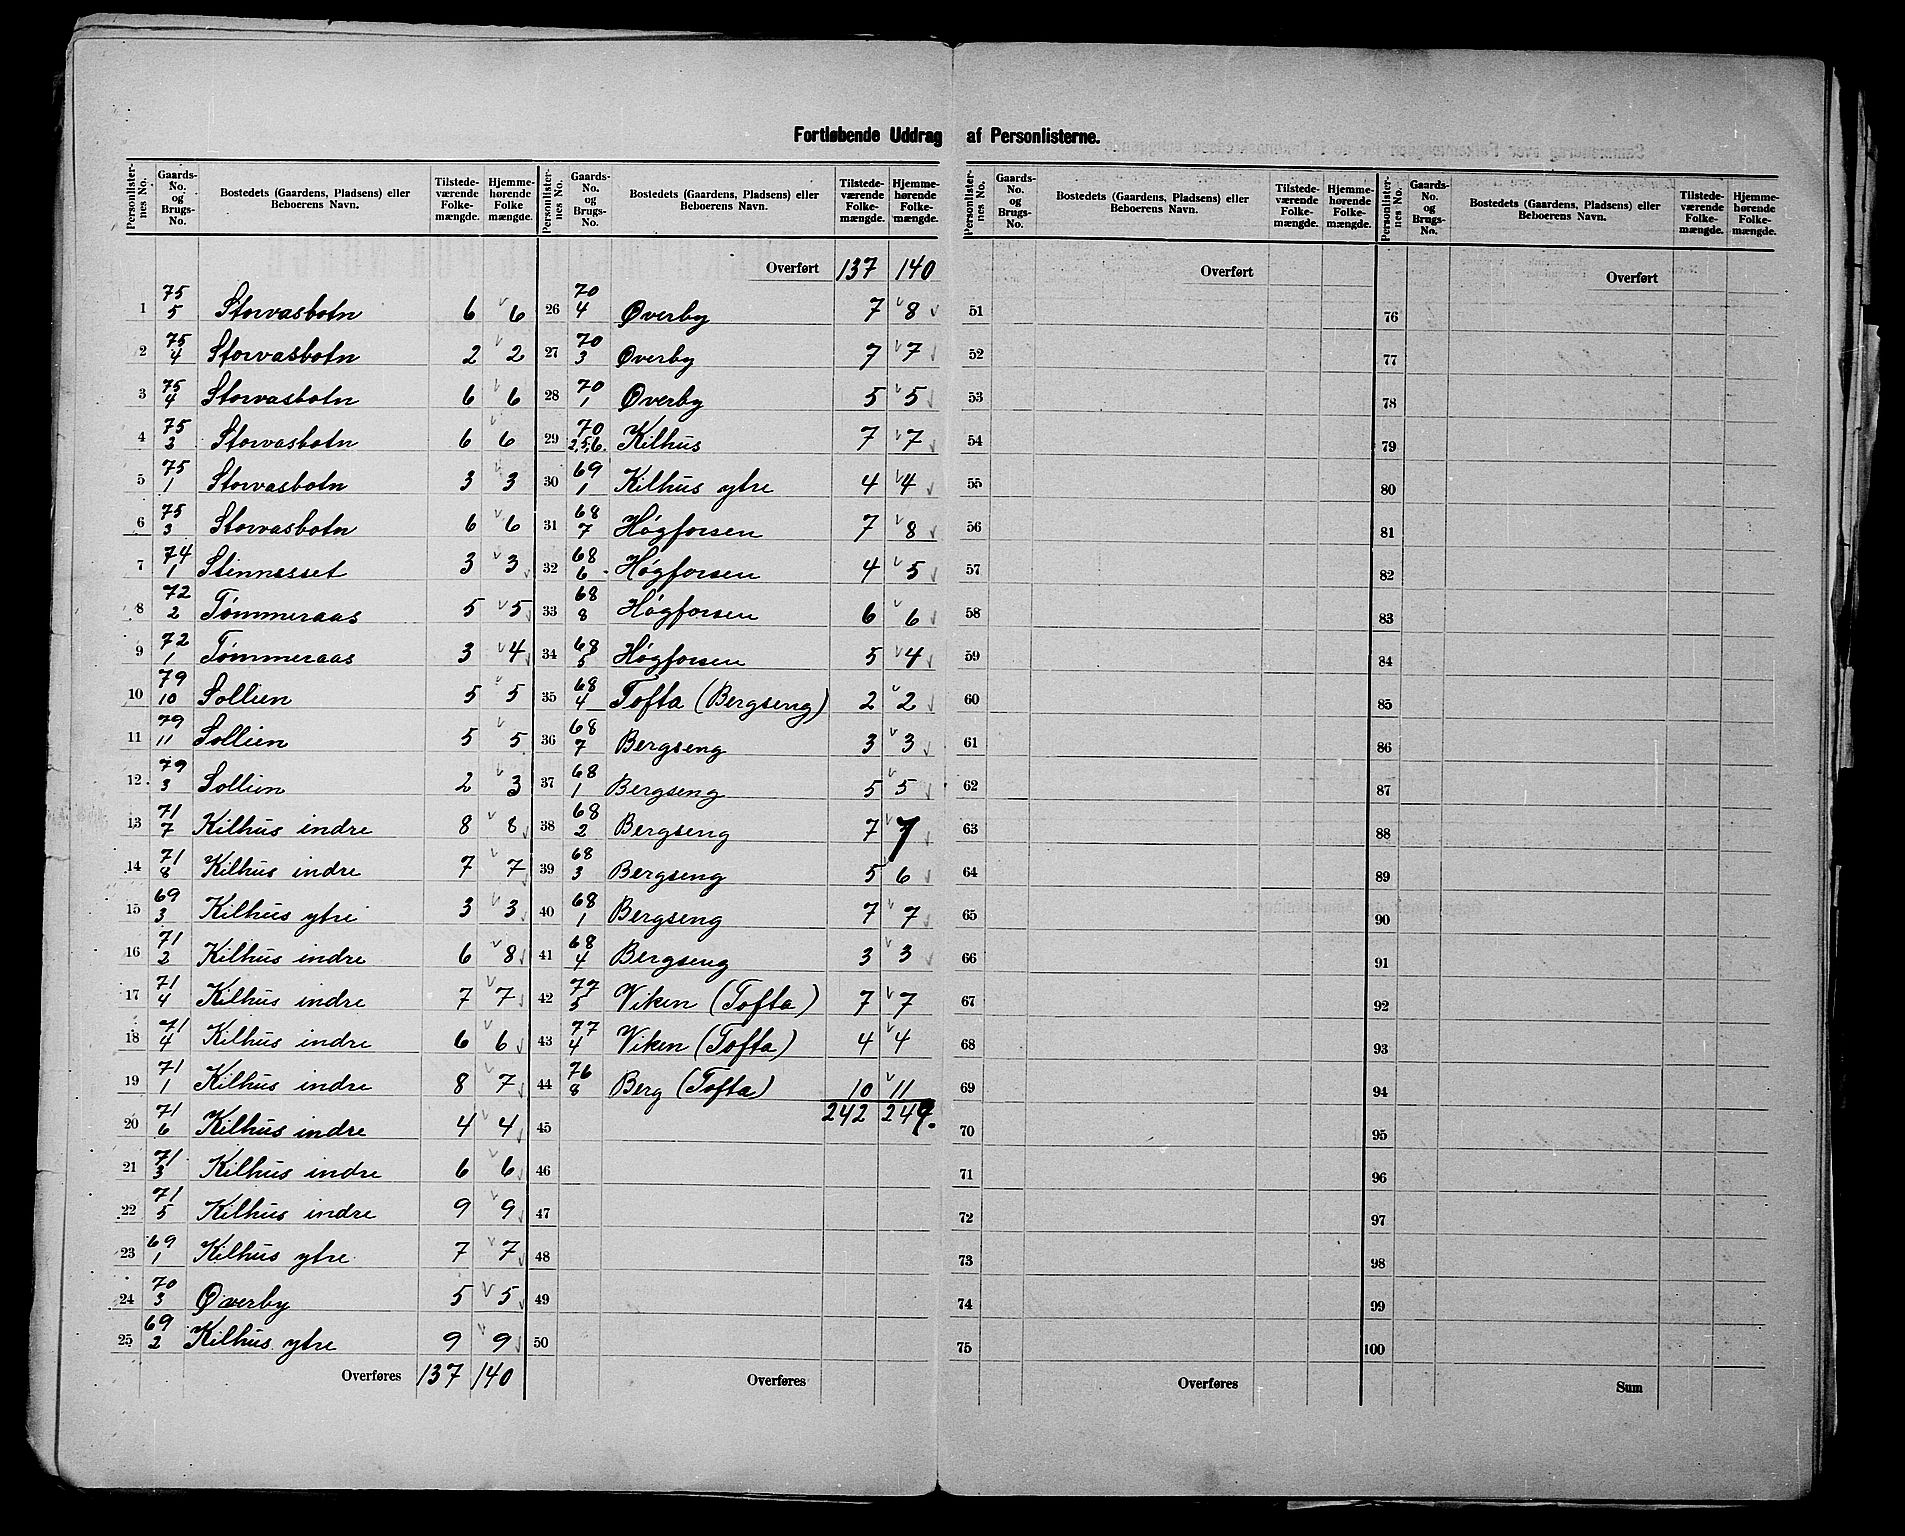 Fortløbende Uddrag af Personlisterne.
Personlister-nes No. | Gaards-No. og Brugs-No. | Bostedets (Gaardens, Pladsens) eller Beboerens Navn. | Tilstede-værende Folke-mængde. | Hjemme-hørende Folke mængde.
1 75/5 Storvasbotn 6 6
2 75/4 Storvasbotn 2 2
3 75/4 Storvasbotn 6 6
4 75/2 Storvasbotn 6 6
5 75/1 Storvasbotn 3 3
6 75/3 Storvasbotn 6 6
7 74/1 Stinnesset 3 3
8 72/2 Tømmeraas 5 5
9 72/1 Tømmeraas 3 4
10 79/10 Sollien 5 5
11 79/11 Sollien 5 5
12 79/3 Sollien 2 3
13 71/7 Kilhus indre 8 8
14 71/8 Kilhus indre 7 7
15 69/3 Kilhus ytre 3 3
16 71/2 Kilhus indre 6 8
17 71/4 Kilhus indre 7 7
18 71/4 Kilhus indre 6 6
19 71/1 Kilhus indre 8 7
20 71/6 Kilhus indre 4 4
21 71/3 Kilhus indre 6 6
22 71/5 Kilhus indre 9 9
23 69/1 Kilhus ytre 7 7
24 70/3 Øverby 5 5
25 69/2 Kilhus ytre 9 9
Overføres 137 140
Personlister-nes No. | Gaards-No. og Brugs-No. | Bostedets (Gaardens, Pladsens) eller Beboerens Navn. | Tilstede-værende Folke-mængde. | Hjemme-hørende Folke-mængde.
Overført 137 140
26 70/4 Øverby 7 8
27 70/3 Øverby 7 7
28 70/1 Øverby 5 5
29 70/2,5,6. Kilhus 7 7
30 69/1 Kilhus ytre 4 4
31 68/7 Høgforsen 7 8
32 68/6 Høgforsen 4 5
33 68/8 Høgforsen 6 6
34 68/5 Høgforsen 5 4
35 68/4 Tofta (Bergseng) 2 2
36 68/7 Bergseng 3 3
37 68/1 Bergseng 5 5
38 68/2 Bergseng 7 7
39 68/3 Bergseng 5 6
40 68/1 Bergseng 7 7
41 68/4 Bergseng 3 3
42 77/5 Viken (Tofta) 7 7
43 77/4 Viken (Tofta) 4 4
44 76/8 Berg (Tofta) 10 11
45 242 249.
46
47
48
49
50
Overføres
Personlister-nes No. | Gaards-No. og Brugs-No. | Bostedets (Gaardens, Pladsens) eller Beboerens Navn. | Tilstede-værende Folke-mængde. | Hjemme-hørende Folke-mængde.
Overført
51
52
53
54
55
56
57
58
59
60
61
62
63
64
65
66
67
68
69
70
71
72
73
74
75
Overføres
Personlister-nes No. | Gaards-No. og Brugs-No. | Bostedets (Gaardens, Pladsens) eller Beboerens Navn. | Tilstede-værende Folke-mængde. | Hjemme-hørende Folke-mængde.
Overført
76
77
78
79
80
81
82
83
84
85
86
87
88
89
90
91
92
93
94
95
96
97
98
99
100
Sum